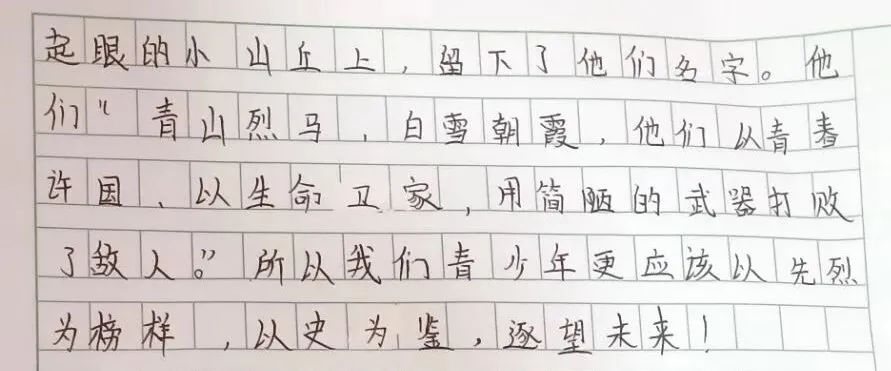 起眼的小山丘上，留下了他们名字。他
们“青山烈马，白雪朝霞，他们以青春
许国、以生命卫家，用简陋的武器打败
了敌人。”所以我们青少年更应该以先烈
为榜样，以史为鉴，逐望未来！